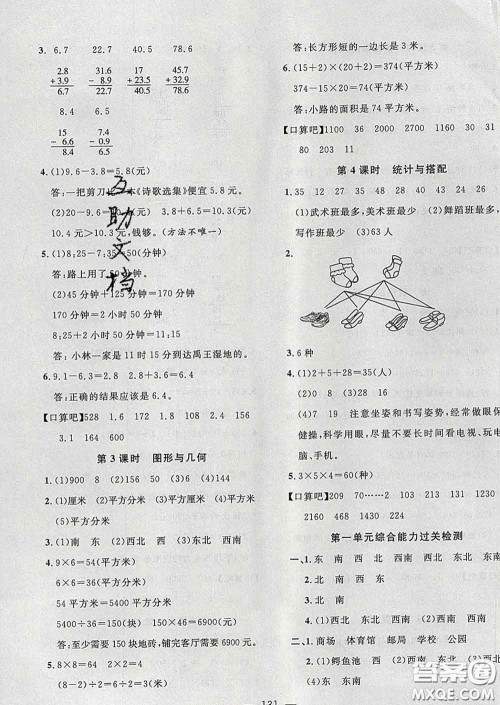 3. 6.7 22.7 40.5 78.6
2.8 31.6 17 45.7
+3.9 - 8.9 +23.5 +32.9
6.7 22.7 40.5 78.6
8.4 6.5
15 7.4
- 6.6 - 0.9
8.4 6.5
4.(1)9.6-3.8=5.8(元)
答:一把剪刀 本《诗歌选集》便宜 5.8 元。
(2)20-9.6=10.4(元) 3.8+6.5=10.3(元)
10.4 元>10.3 元,钱够。(方法不唯一)
5.(1)8:25-7:35=50(分钟)
答:路上用了 50 分钟。
(2)45 分钟+125 分钟=170 分钟
170 分钟=2 小时 50 分钟
8:25+2 小时 50 分钟=11:15
答:小林一家是 11 时 15 分到达禹王湿地的。
6. 9.1-6.3=2.8 3.6+2.8=6.4
答:正确的结果应该是 6.4。
【口算吧】528 1.6 172 108 2.4 156
3.1 164 600
第 3 课时 图形与几何
1.(1)900 8 (2)156 50 (3)6 (4)144
2.(1)厘米 (2)平方分米 (3)厘米 平方厘米
(4)平方分米
3.(1)东北 (2)西北 西 (3)东北 西南
4. 9×6=54(平方米)
6×6=36(平方分米)
54 平方米=5400 平方分米
5400÷36=150(块)
150×46=6900(元)
答:至少需要 150 块地砖,铺完客厅需要 6900 元。
5. 8×8=64 2×2=4
(8-2)÷2=3(米)
互
助
文
档
答:长方形短的一边长是 3 米。
6.(15+2)×(20+2)=374(平方米)
374-15×20=74(平方米)
答:小路的面积是 74 平方米。
【口算吧】1100 36 2000 3200 1160 31
80 203 11
第 4 课时 统计与搭配
1. 35 12 27 38 16 28 40 43 24 26
(1)武术班最多,美术班最少 (2)舞蹈班最多,
写作班最少 (3)63 人
2.
3. 6 种
4.(1)2+5+28=35(人)
(2)7 19 注意坐姿和书写姿势,经常做眼保
健操,科学用眼,不要长时间看电视、玩电
脑、手机。
5. 3×5×4=60(种)
【口算吧】209 70……2 103 213 1230
2160 468 1430 9200
第一单元综合能力过关检测
一、1. 东 南 西 北 西南 西北 东南 东北
2. 北 南 西 东
3. 北 西南
4.(1)西北 东北 西南 (2)西北 东南
二、商场 体育馆 邮局 学校 公园
三、1.(1)鳄鱼池 (2)西北 (3)西北
(4)东 南
131
答案圈
MXQE.COM